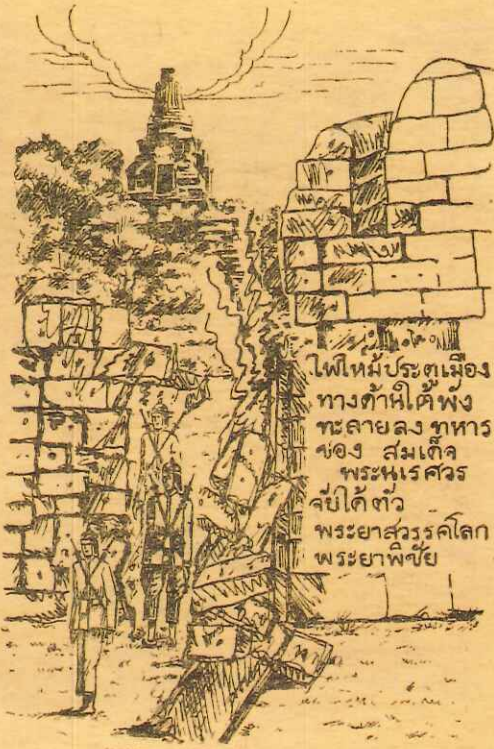 ไฟไหม้ประตูเมือง
ทางด้านใต้พัง
ทะลายลง ทหาร
ของ สมเด็จ
พระนเรศวร
จับได้ตัว
พระยาสวรรคโลก
พระยาพิชัย